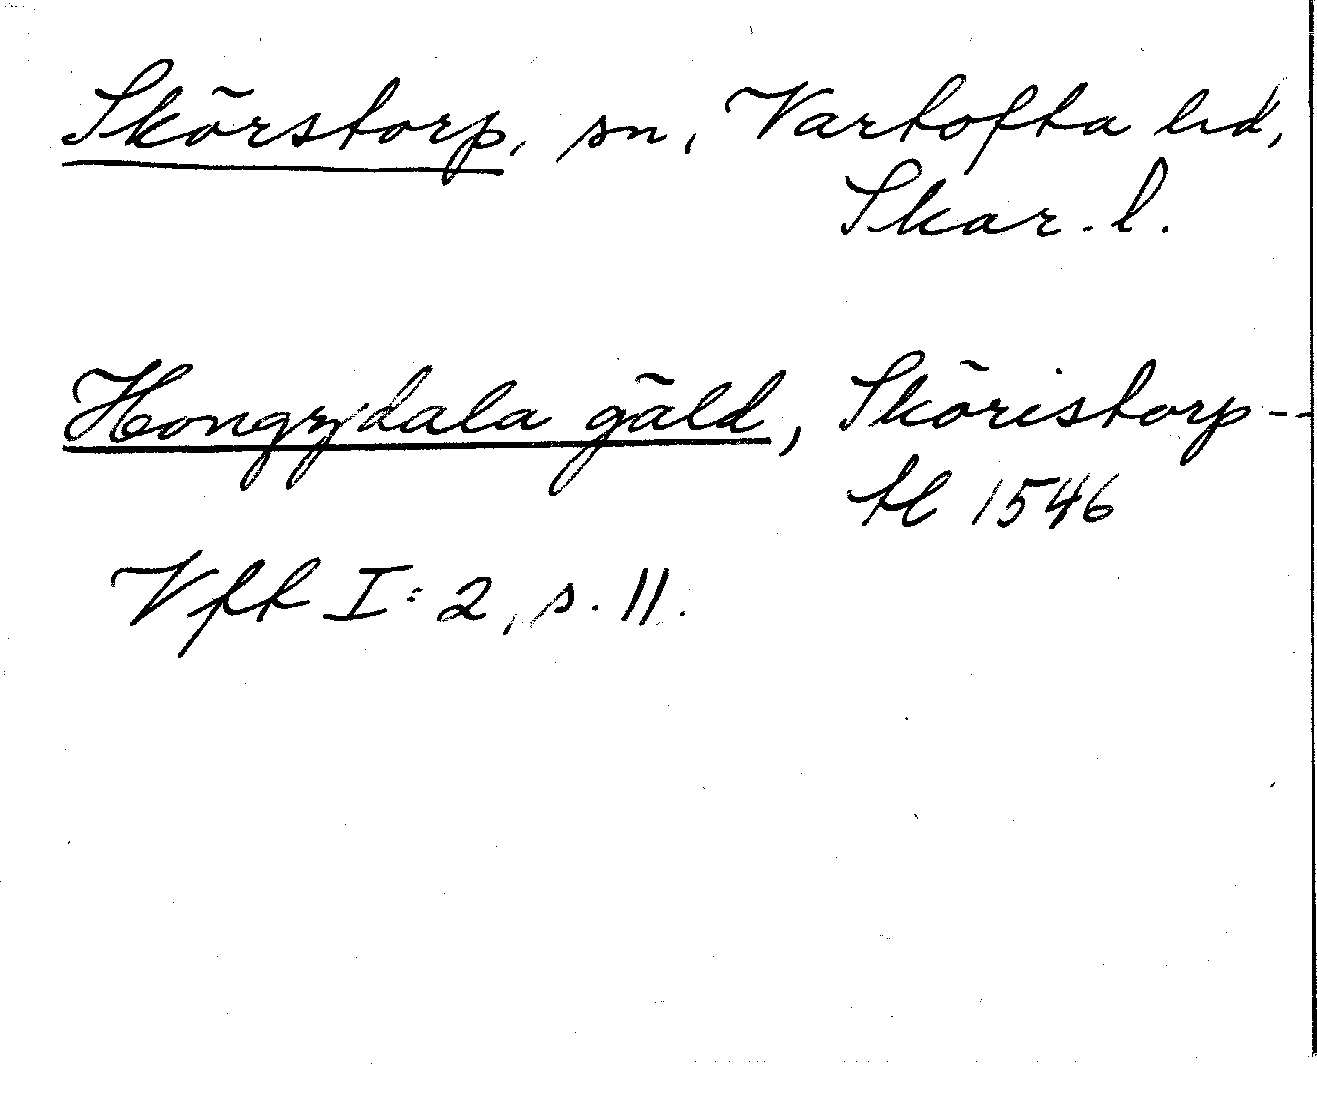 Skörstorp, sn, Vartofta hd,
Skar. l.
Hongzdala gäld, Sköristorp--
tl 1546
Vftl I:2, s. 11.